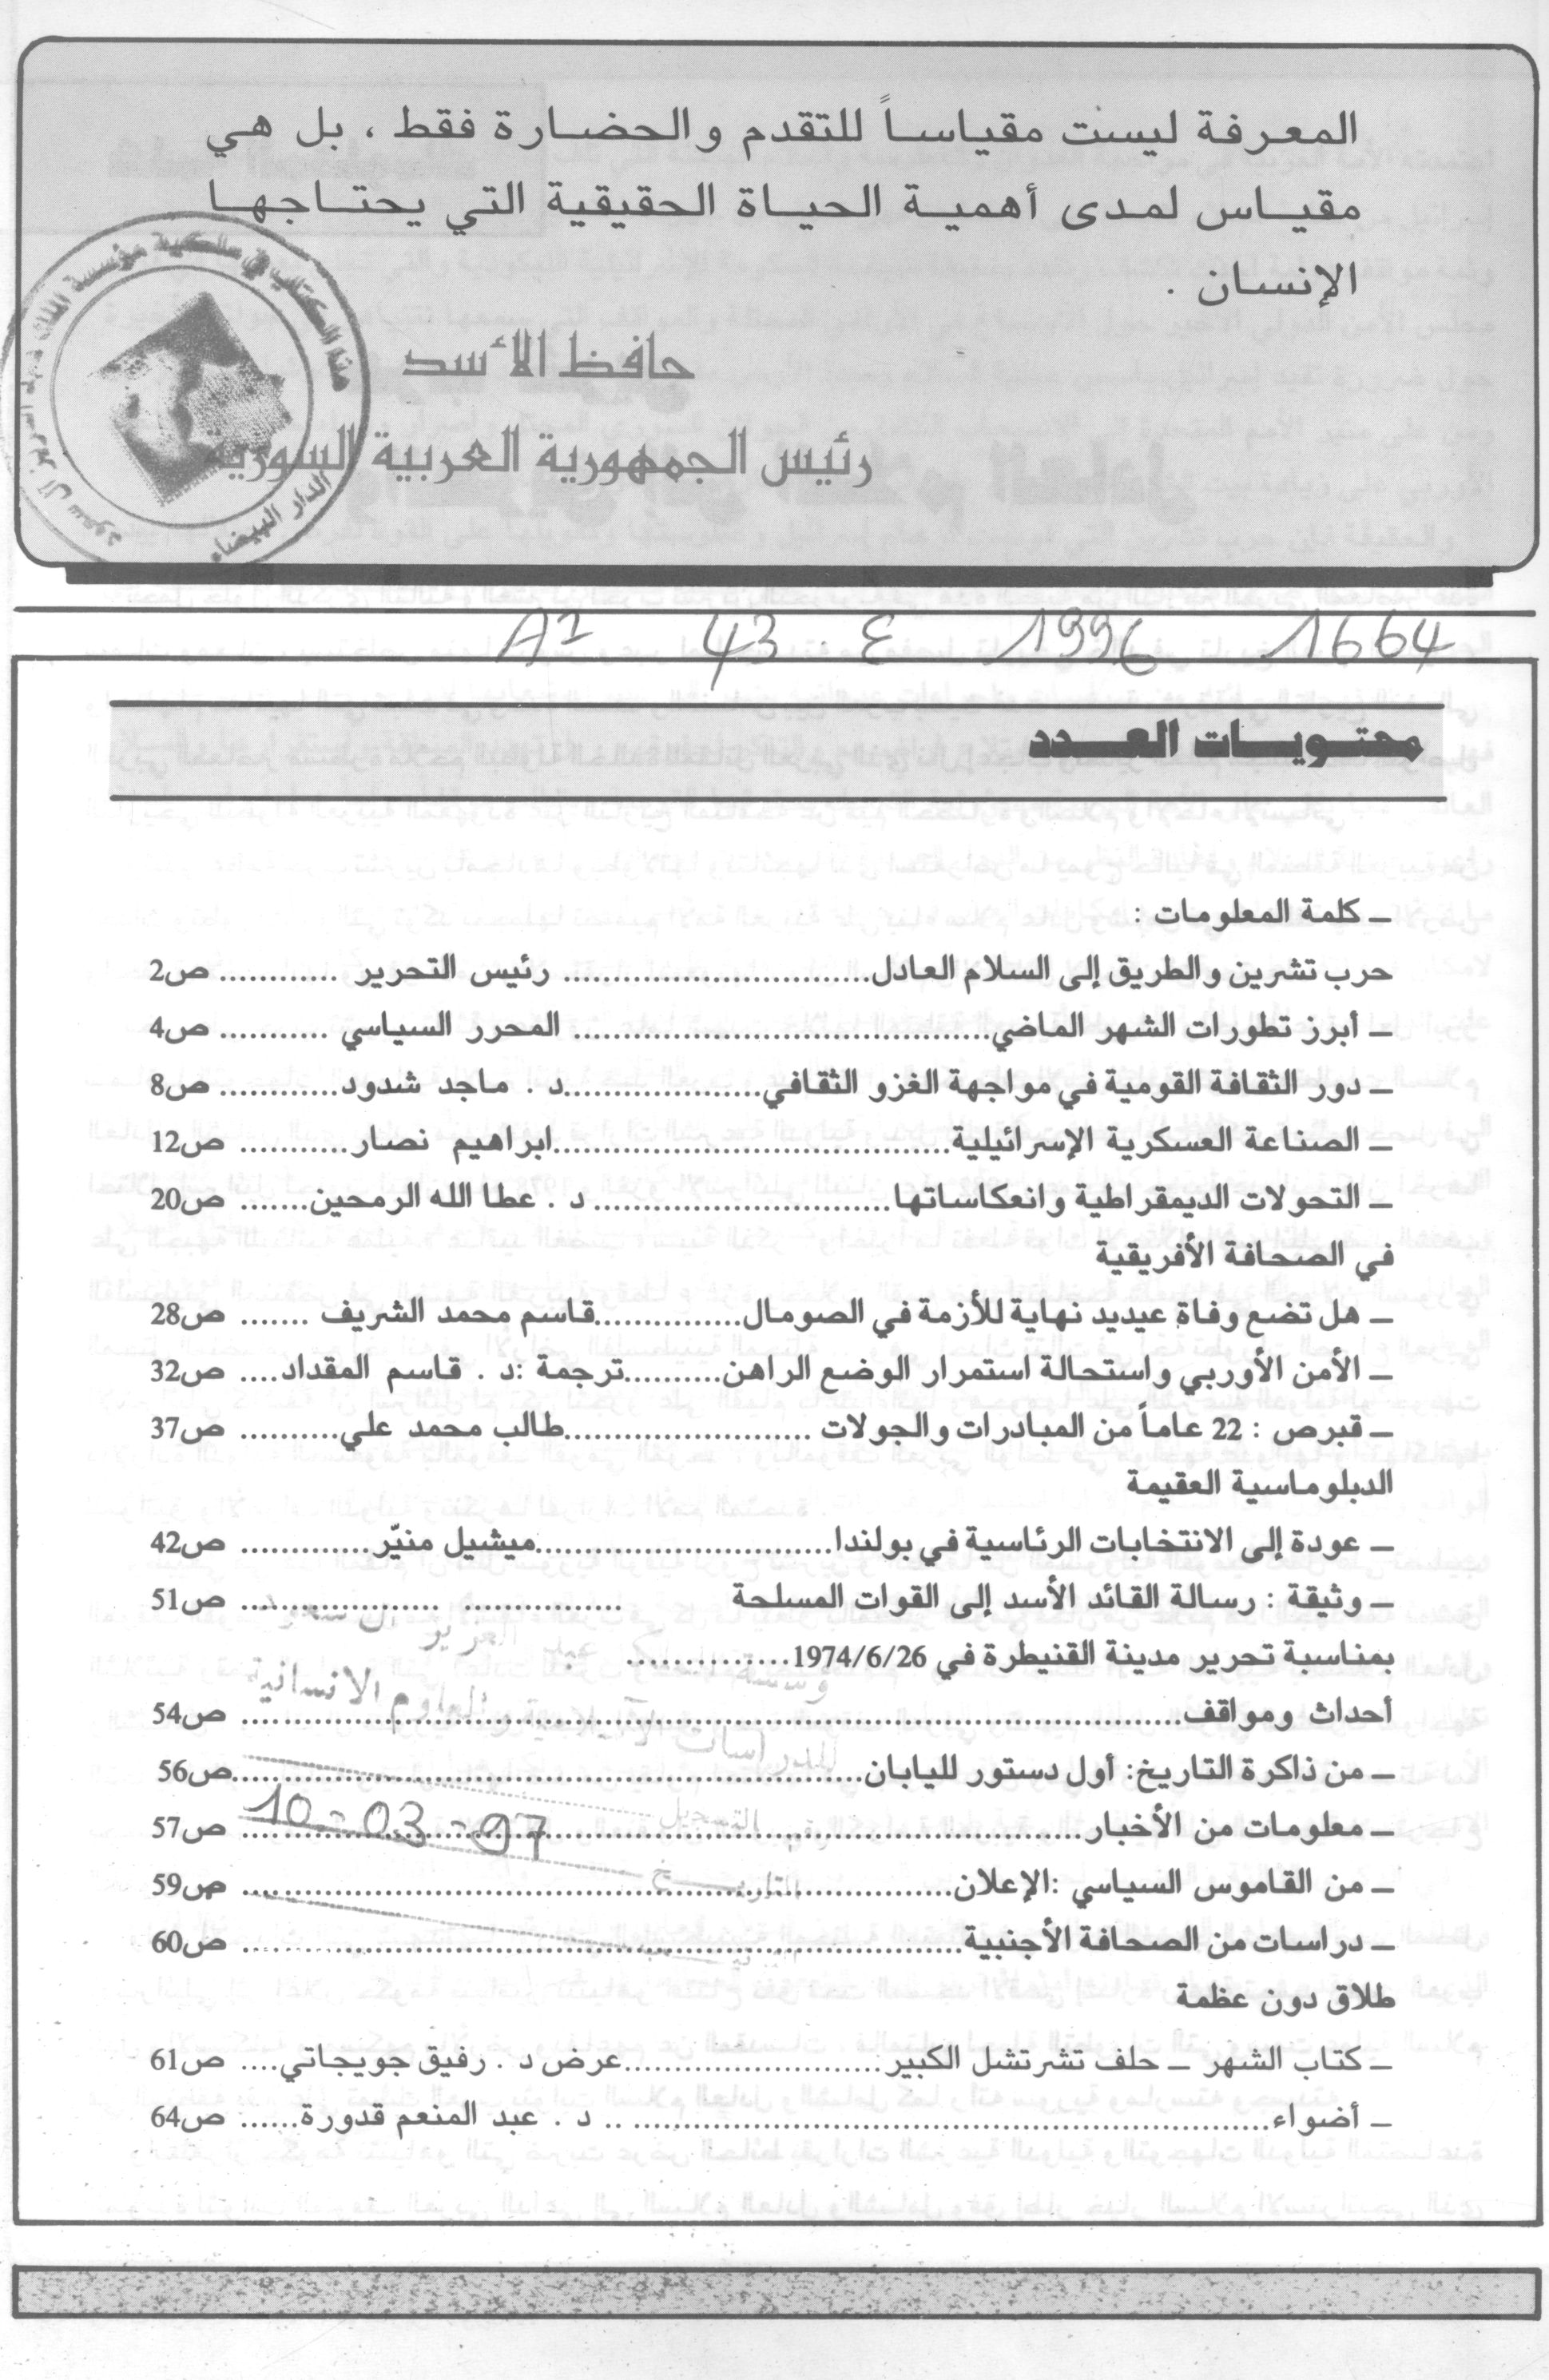 المعرفة ليست مقياساً للتقدم والحضارة فقط ، بل هي
مقياس لمدى أهمية الحياة الحقيقية التي يحتاجها
الإنسان .
حافظ الأسد
رئيس الجمهورية العربية السورية
الدار البيضاء
A1 43 . E 1996 1664
محتويات العدد
ـ كلمة المعلومات :
حرب تشرين والطريق إلى السلام العادل.............................. رئيس التحرير ............ ص2
ـ أبرز تطورات الشهر الماضي........................................ المحرر السياسي ........... ص4
ـ دور الثقافة القومية في مواجهة الغزو الثقافي...................د . ماجد شدود............ ص8
ـ الصناعة العسكرية الإسرائيلية......................................ابراهيم نصار........... ص12
ـ التحولات الديمقراطية وانعكاساتها............................. د . عطا الله الرمحين....... ص20
في الصحافة الأفريقية
ـ هل تضع وفاة عيديد نهاية للأزمة في الصومال..............قاسم محمد الشريف ....... ص28
ـ الأمن الأوربي واستحالة استمرار الوضع الراهن..........ترجمة :د . قاسم المقداد.... ص32
ـ قبرص : 22 عاماً من المبادرات والجولات ........................طالب محمد علي.......... ص37
الدبلوماسية العقيمة
ـ عودة إلى الانتخابات الرئاسية في بولندا.............................ميشيل منيّر............. ص42
ـ وثيقة : رسالة القائد الأسد إلى القوات المسلحة ............... ................... ص51
بمناسبة تحرير مدينة القنيطرة في 1974/6/26................
أحداث ومواقف........................................................................................... ص54
ـ من ذاكرة التاريخ: أول دستور لليابان.............................................................ص56
ـ معلومات من الأخبار.................................................................................. ص57
10-03-97
ـ من القاموس السياسي :الإعلان..................................................................... ص59
ـ دراسات من الصحافة الأجنبية...................................................................... ص60
طلاق دون عظمة
ـ كتاب الشهر ـ حلف تشرتشل الكبير.........................عرض د . رفيق جويجاتي.... ص61
ـ أضواء.............................................................. .. د . عبد المنعم قدورة...... ص64